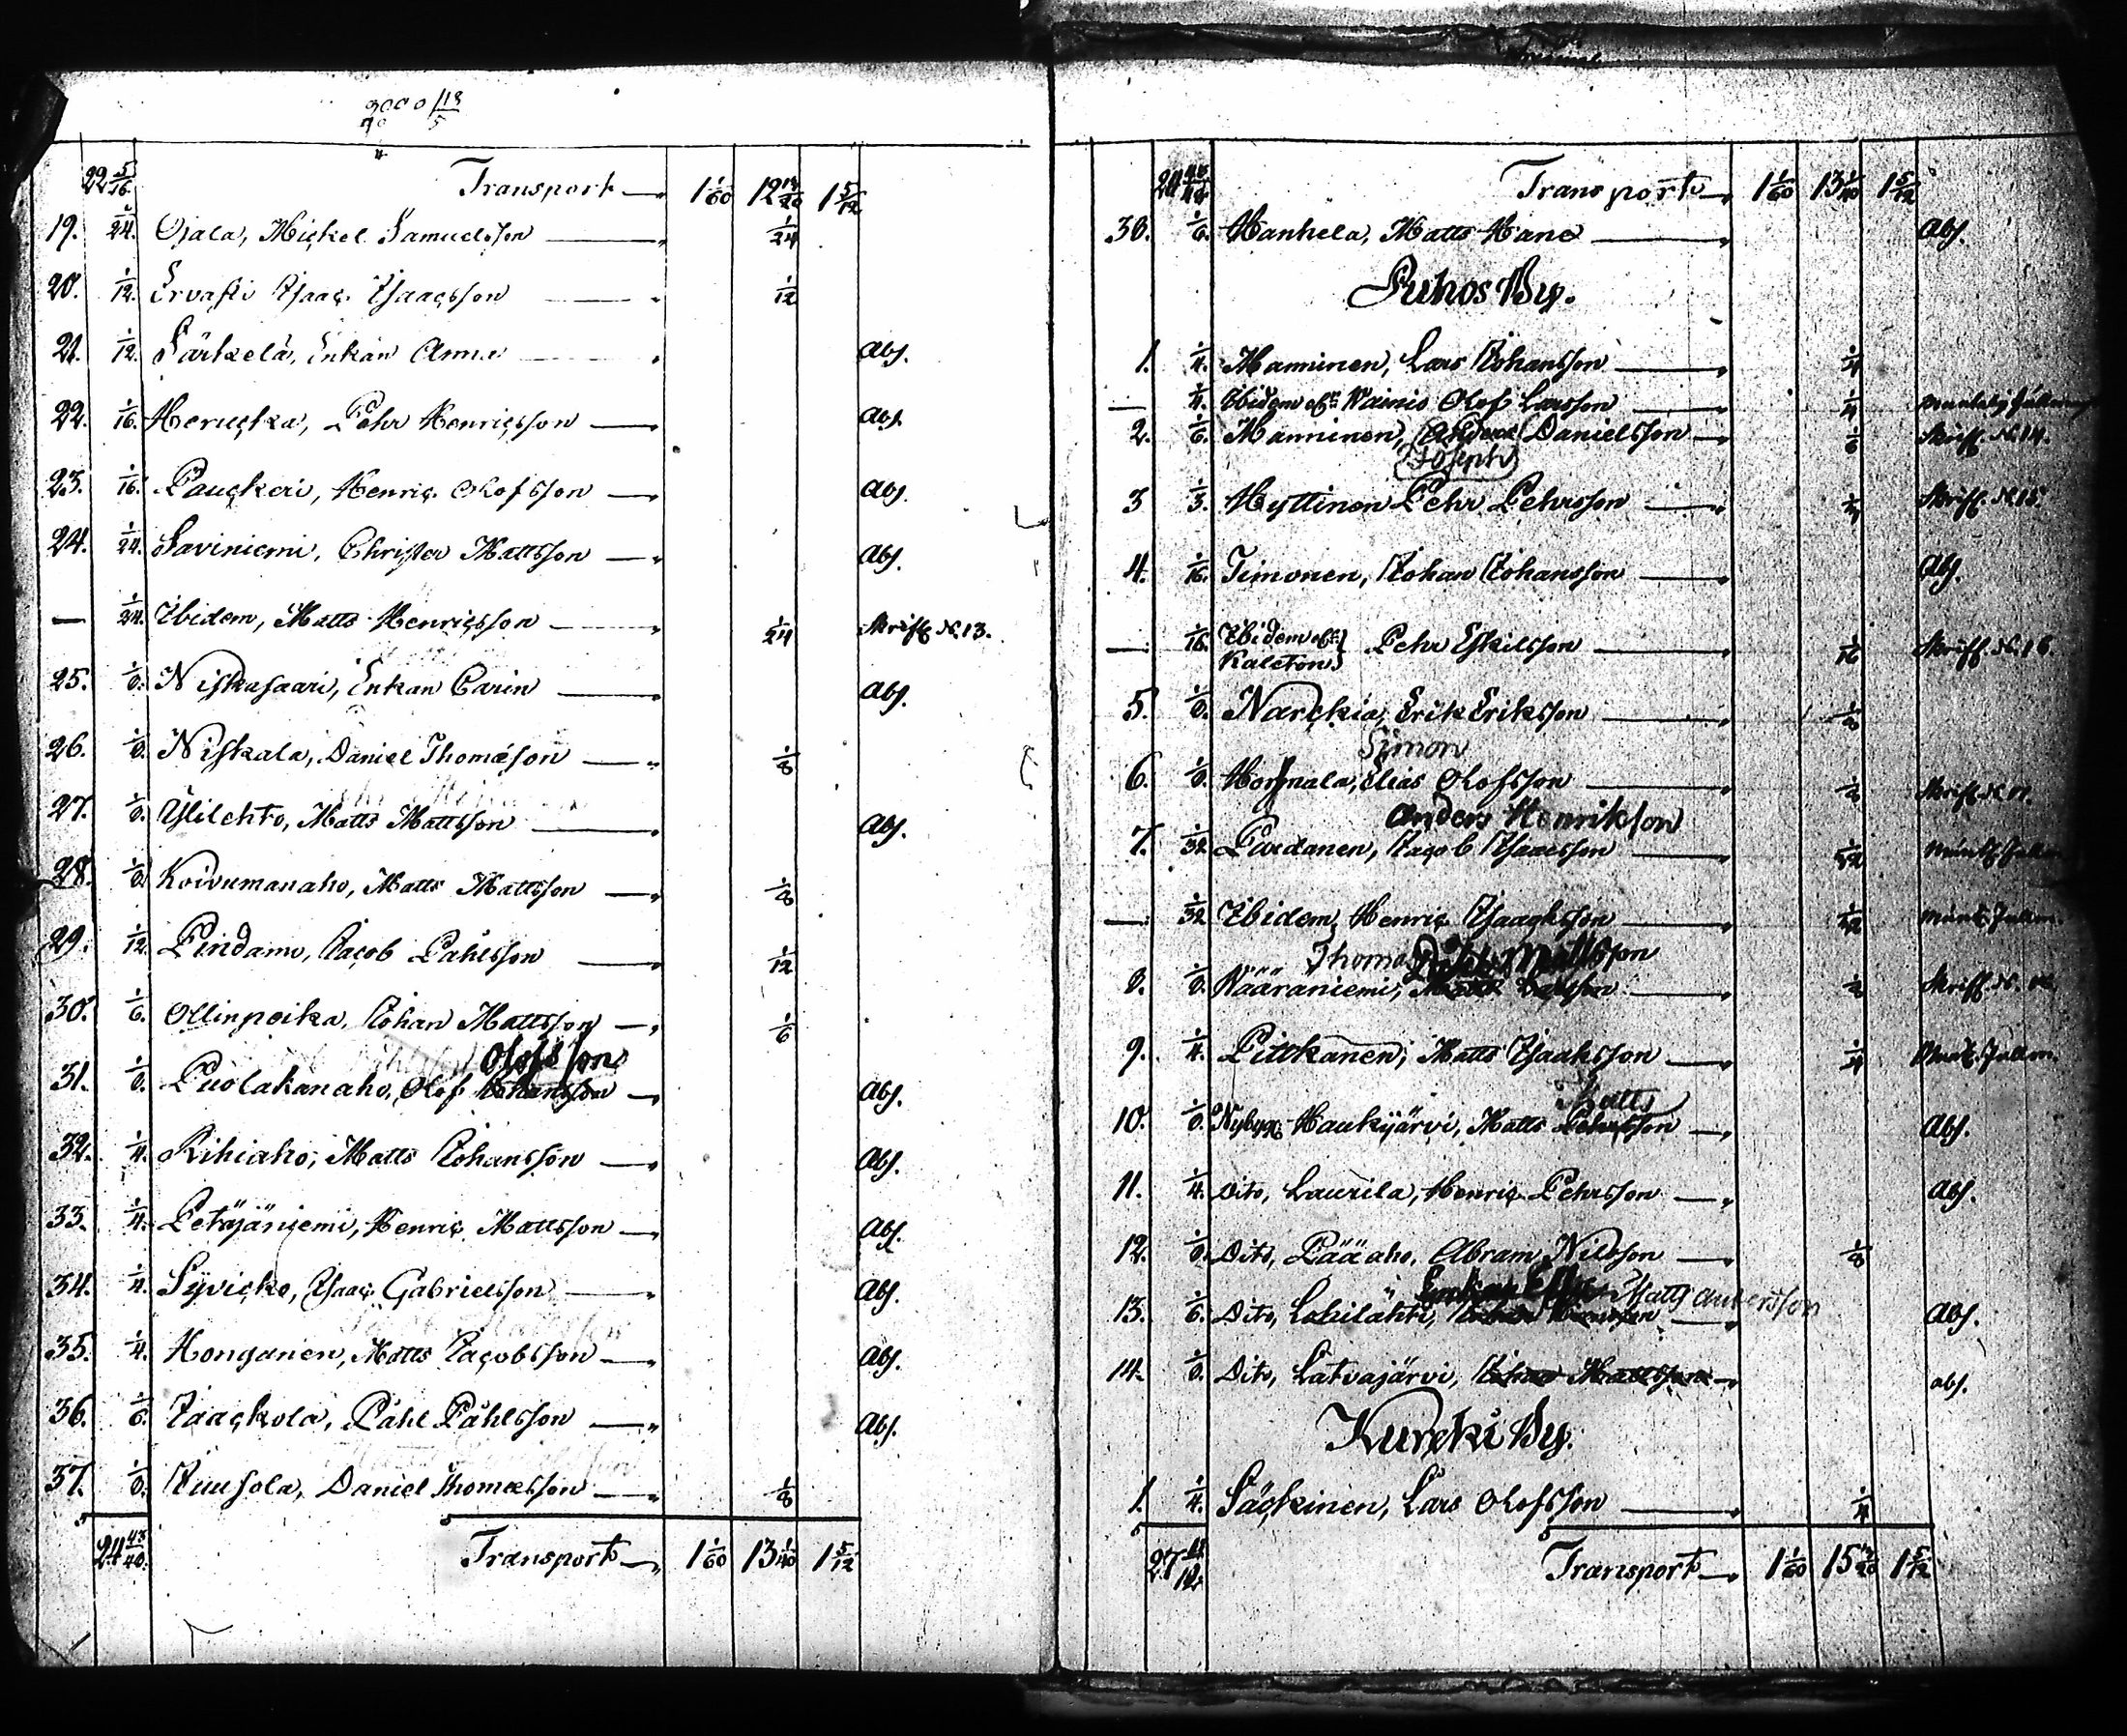 3000 | 18
70 5
22 5/16. Transport 1 1/60 12 1 5/12
19. 1/24. Ojala, Mickel Samuelsson 1/24
20. 1/12. Ervasti Isaac Isaacsson 1/12
21. 1/12. Särkelä, Enkan Anna Abs.
22. 1/16. Herucka, Pehr Henricsson Abs.
23. 1/16. Pauckeri, Henric Olofsson Abs.
24. 1/24. Saviniemi, Christer Mattsson Abs.
— 1/24. Ibidem, Matts Henricsson 1/24 Skrift. N. 13.
25. 1/8. Niskasaari, Enkan Carin Abs.
26. 1/8. Niskala, Daniel Thomæson 1/8
27. 1/8. Ylilehto, Matts Mattsson Abs.
28. 1/8. Koivumanaho, Matts Mattsson 1/8
29. 1/12. Pindamo, Jacob Påhlsson 1/12
30. 1/6. Ollinpoika, Johan Mattsson 1/6
Olofsson
31. 1/8. Puolakanaho, Olof Johansson Abs.
32. 1/4. Rihiaho, Matts Johansson Abs.
33. 1/4. Petäjäniemi, Henric Mattsson Abs.
34. 1/4. Syvicko, Isaac Gabrielsson Abs.
35. 1/4. Honganen, Matts Jacobsson Abs.
36. 1/6. Jaackola, Påhl Påhlsson Abs.
37. 1/8. Juusola, Daniel Thomæsson 1/8
24 43/40. Transport 1 1/60 13 1/40 1 5/12
24 Transport 1 1/60 13 1/40 1 5/12
38. 1/6. Hanhela, Matts Hane Abs.
Puhos By.
1. 1/4. Manninen, Lars Johansson 1/4
— 1/4. Ibidem Wainio Olof Larsson 1/4
2. 1/6. Manninen, Anders Danielsson 1/6 Skrift. N. 14.
Joseph
3 1/3. Hyttinen Pehr Pehrsson Skrift. N. 15.
4. 1/16. Timonen, Johan Johansson Abs.
— 1/16. Ibidem Kaleton} Pehr Eskilsson 1/16 Skrift. N. 16
5. 1/8. Narckia, Erik Eriksson 1/8
Simon
6. 1/8. Hornala, Elias Olofsson 1/8 Skrift N. 17.
Anders Henrikson
7. 1/32 Purdanen, Jacob Isacsson 1/32
— 1/32 Ibidem, Henric Isaacksson 1/32
Thomas Mattsson
8. 1/8. Wääraniemi, 1/8 Skrift. N. 18.
9. 1/4. Pittkanen, Matts Isaaksson 1/4
Matts
10. 1/8. Nybyg. Haukijärvi, Matts Pehrsson Abs.
11. 1/4. Dito, Laurila, Henric Pehrsson Abs.
12. 1/8. Dito, Pääaho, Abram Nilsson 1/8
Matts Andersson
13. 1/6. Dito, Lokilahti, Abs.
14. 1/8. Dito, Latvajärvi, Johan Mattsson abs.
Kurcki By.
1. 1/4. Säckinen, Lars Olofsson 1/4
27 Transport 1 1/60 15 1 5/12